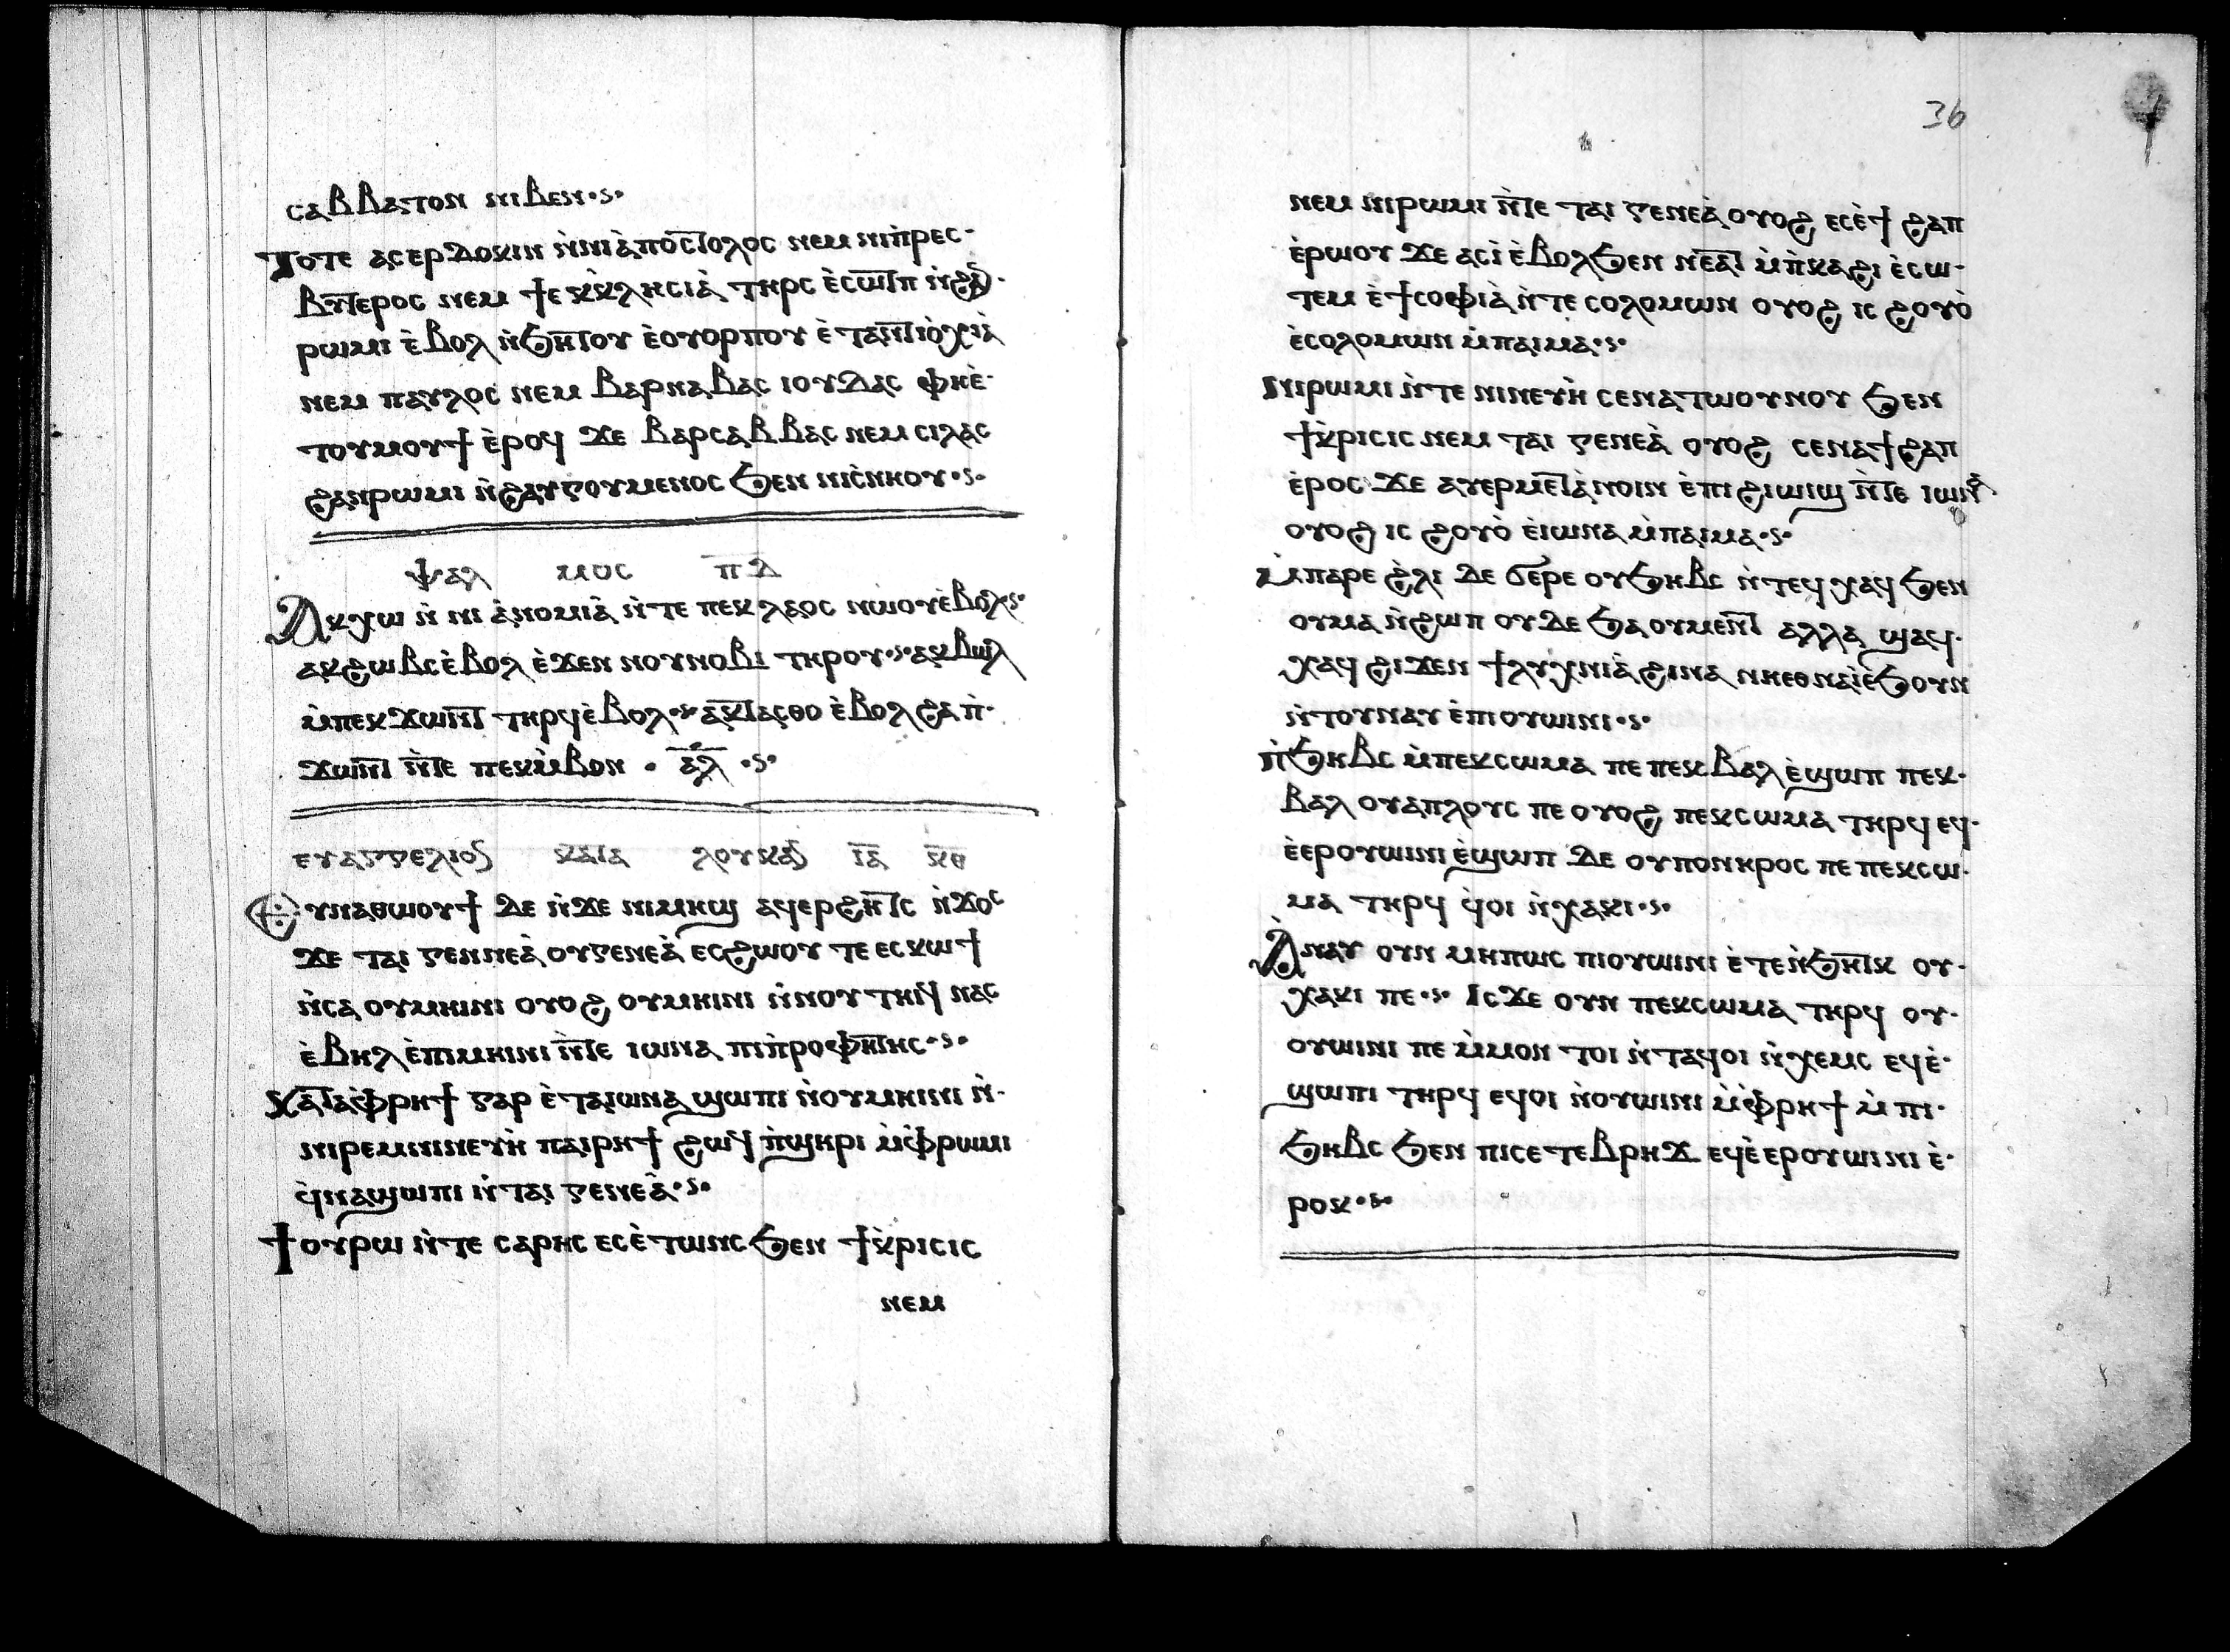 ⲥⲁⲃⲃⲁⲧⲟⲛ ⲛⲓⲃⲉⲛ·ⲋ·
Ⲧⲟⲧⲉ ⲁⲥⲉⲣⲇⲟⲕⲓⲛ ⲛ̀ⲛⲓⲁ̀ⲡⲟⲥⲧⲟⲗⲟⲥ ⲛⲉⲙ ⲛⲓⲡ̀ⲣⲉⲥ-
ⲃⲩⲧⲉⲣⲟⲥ ⲛⲉⲙ ϯⲉⲕⲕ̀ⲗⲏⲥⲓⲁ̀ ⲧⲏⲣⲥ ⲉ̀ⲥⲱⲧⲡ ⲛ̀ϩⲁⲛ-
ⲣⲱⲙⲓ ⲉ̀ⲃⲟⲗ ⲛ̀ϧⲏⲧⲟⲩ ⲉ̀ⲟⲩⲟⲣⲡⲟⲩ ⲉ̀ⲧⲁⲛⲧⲓⲟ̀ⲭⲓⲁ̀
ⲛⲉⲙ ⲡⲁⲩⲗⲟⲥ ⲛⲉⲙ ⲃⲁⲣⲛⲁⲃⲁⲥ ⲓⲟⲩⲇⲁⲥ ⲫⲏⲉ̀-
ⲧⲟⲩⲙⲟⲩϯ ⲉ̀ⲣⲟϥ ϫⲉ ⲃⲁⲣⲥⲁⲃⲃⲁⲥ ⲛⲉⲙ ⲥⲓⲗⲁⲥ
ϩⲁⲛⲣⲱⲙⲓ ⲛ̀ϩⲁⲩⲅⲟⲩⲙⲉⲛⲟⲥ ϧⲉⲛ ⲛⲓⲥ̀ⲛⲏⲟⲩ·ⲋ·
ⲯⲁⲗ ⲙⲟⲥ ⲡ̅ⲇ̅
Ⲁⲕⲭⲱ ⲛ̀ ⲛⲓ ⲁ̀ⲛⲟⲙⲓⲁ̀ ⲛ̀ⲧⲉ ⲡⲉⲕⲗⲁⲟⲥ ⲛⲱⲟⲩⲉ̀ⲃⲟⲗ·ⲋ·
ⲁⲕϩⲱⲃⲥ ⲉ̀ⲃⲟⲗ ⲉ̀ϫⲉⲛ ⲛⲟⲩⲛⲟⲃⲓ ⲧⲏⲣⲟⲩ·ⲋ·ⲁⲕⲃⲱⲗ
ⲙ̀ⲡⲉⲕϫⲱⲛⲧ ⲧⲏⲣϥ ⲉ̀ⲃⲟⲗ·ⲋ· ⲁⲕⲧⲁⲥⲑⲟ ⲉ̀ⲃⲟⲗ ϩⲁ ⲡ̀-
ϫⲱⲛⲧ ⲛ̀ⲧⲉ ⲡⲉⲕⲙ̀ⲃⲟⲛ · ⲁ̅ⲗ̅ ·ⲋ·
ⲉⲩⲁⲅⲅⲉⲗⲓⲟⲛ ⲕⲁⲧⲁ ⲗⲟⲩⲕⲁⲛ ⲓ̅ⲁ̅ ⲕ̅ⲑ̅
Ⲉⲩⲛⲁⲑⲱⲟⲩϯ ⲇⲉ ⲛ̀ϫⲉ ⲛⲓⲙⲏϣ ⲁϥⲉⲣϩⲏⲧⲥ ⲛ̀ϫⲟⲥ
ϫⲉ ⲧⲁⲓ ⲅⲉⲛⲛⲉⲁ̀ ⲟⲩⲅⲉⲛⲉⲁ̀ ⲉⲥϩⲱⲟⲩ ⲧⲉ ⲉⲥⲕⲱϯ
ⲛ̀ⲥⲁ ⲟⲩⲙⲏⲓⲛⲓ ⲟⲩⲟϩ ⲟⲩⲙⲏⲓⲛⲓ ⲛ̀ⲛⲟⲩⲧⲏⲓϥ ⲛⲁⲥ
ⲉ̀ⲃⲏⲗ ⲉ̀ⲡⲓⲙⲏⲓⲛⲓ ⲛ̀ⲧⲉ ⲓⲱⲛⲁ ⲡⲓⲡ̀ⲣⲟⲫⲏⲧⲏⲥ·ⲋ·
Ⲕⲁⲧⲁⲫ̀ⲣⲏϯ ⲅⲁⲣ ⲉ̀ⲧⲁⲓⲱⲛⲁ ϣⲱⲡⲓ ⲛ̀ⲟⲩⲙⲏⲓⲛⲓ ⲛ̀-
ⲛⲓⲣⲉⲙⲛⲓⲛⲉⲩⲏ̀ ⲡⲁⲓⲣⲏϯ ϩⲱϥ ⲡ̀ϣⲏⲣⲓ ⲙ̀ⲫ̀ⲣⲱⲙⲓ
ϥ̀ⲛⲁϣⲱⲡⲓ ⲛ̀ⲧⲁⲓ ⲅⲉⲛⲉⲁ̀·ⲋ·
Ϯⲟⲩⲣⲱ ⲛ̀ⲧⲉ ⲥⲁⲣⲏⲥ ⲉⲥⲉ̀ⲧⲱⲛⲥ ϧⲉⲛ ϯⲕ̀ⲣⲓⲥⲓⲥ
ⲛⲉⲙ
36
ⲛⲉⲙ ⲛⲓⲣⲱⲙⲓ ⲛ̀ⲧⲉ ⲧⲁⲓ ⲅⲉⲛⲉⲁ̀ ⲟⲩⲟϩ ⲉⲥⲉ̀ϯ ϩⲁⲡ
ⲉ̀ⲣⲱⲟⲩ ϫⲉ ⲁⲥⲓ̀ ⲉ̀ⲃⲟⲗϧⲉⲛ ⲛⲉⲁⲧ ⲙ̀ⲡ̀ⲕⲁϩⲓ ⲉ̀ⲥⲱ-
ⲧⲉⲙ ⲉ̀ϯⲥⲟⲫⲓⲁ̀ ⲛ̀ⲧⲉ ⲥⲟⲗⲟⲙⲱⲛ ⲟⲩⲟϩ ⲓⲥ ϩⲟⲩⲟ̀
ⲉ̀ⲥⲟⲗⲟⲙⲱⲛ ⲙ̀ⲡⲁⲓⲙⲁ·ⲋ·
Ⲛⲓⲣⲱⲙⲓ ⲛ̀ⲧⲉ ⲛⲓⲛⲉⲩⲏ̀ ⲥⲉⲛⲁⲧⲱⲟⲩⲛⲟⲩ ϧⲉⲛ
ϯⲕ̀ⲣⲓⲥⲓⲥ ⲛⲉⲙ ⲧⲁⲓ ⲅⲉⲛⲉⲁ̀ ⲟⲩⲟϩ ⲥⲉⲛⲁϯϩⲁⲡ
ⲉ̀ⲣⲟⲥ ϫⲉ ⲁⲩⲉⲣⲙⲉⲧⲁ̀ⲛⲟⲓⲛ ⲉ̀ⲡⲓϩⲓⲱⲓϣ ⲛ̀ⲧⲉ ⲓⲱⲛⲁ
ⲟⲩⲟϩ ⲓⲥ ϩⲟⲩⲟ̀ ⲉ̀ⲓⲱⲛⲁ ⲙ̀ⲡⲁⲓⲙⲁ·ⲋ·
Ⲙ̀ⲡⲁⲣⲉ ϩ̀ⲗⲓ ⲇⲉ ϭⲉⲣⲉ ⲟⲩϧⲏⲃⲥ ⲛ̀ⲧⲉϥ ⲭⲁϥ ϧⲉⲛ
ⲟⲩⲙⲁ ⲛ̀ϩⲱⲡ ⲟⲩⲇⲉ ϧⲁ ⲟⲩⲙⲉⲛⲧ ⲁⲗⲗⲁ ϣⲁϥ-
ⲭⲁϥ ϩⲓϫⲉⲛ ϯⲗⲩⲭⲛⲓⲁ̀ ϩⲓⲛⲁ ⲛⲏⲉⲑⲛⲁⲓ̀ⲉ̀ϧⲟⲩⲛ
ⲛ̀ⲧⲟⲩⲛⲁⲩ ⲉ̀ⲡⲓⲟⲩⲱⲓⲛⲓ·ⲋ·
Ⲡ̀ϧⲏⲃⲥ ⲙ̀ⲡⲉⲕⲥⲱⲙⲁ ⲡⲉ ⲡⲉⲕⲃⲁⲗ ⲉ̀ϣⲱⲡ ⲡⲉⲕ-
ⲃⲁⲗ ⲟⲩⲁⲡⲗⲟⲩⲥ ⲡⲉ ⲟⲩⲟϩ ⲡⲉⲕⲥⲱⲙⲁ ⲧⲏⲣϥ ⲉϥ-
ⲉ̀ⲉⲣⲟⲩⲱⲓⲛⲓ ⲉ̀ϣⲱⲡ ⲇⲉ ⲟⲩⲡⲟⲛⲏⲣⲟⲥ ⲡⲉ ⲡⲉⲕⲥⲱ-
ⲙⲁ ⲧⲏⲣϥ ϥ̀ⲟⲓ ⲛ̀ⲭⲁⲕⲓ·ⲋ·
Ⲁ̀ⲛⲁⲩ ⲟⲩⲛ ⲙⲏⲡⲱⲥ ⲡⲓⲟⲩⲱⲓⲛⲓ ⲉ̀ⲧⲉⲛ̀ϧⲏⲧⲕ ⲟⲩ-
ⲭⲁⲕⲓ ⲡⲉ·ⲋ· Ⲓⲥϫⲉ ⲟⲩⲛ ⲡⲉⲕⲥⲱⲙⲁ ⲧⲏⲣϥ ⲟⲩ-
ⲟⲩⲱⲓⲛⲓ ⲡⲉ ⲙ̀ⲙⲟⲛ ⲧⲟⲓ ⲛ̀ⲧⲁϥⲟⲓ ⲛ̀ⲭⲉⲙⲥ ⲉϥⲉ̀-
ϣⲱⲡⲓ ⲧⲏⲣϥ ⲉϥⲟⲓ ⲛ̀ⲟⲩⲱⲓⲛⲓ ⲙ̀ⲫ̀ⲣⲏϯ ⲙ̀ ⲡⲓ-
ϧⲏⲃⲥ ϧⲉⲛ ⲡⲓⲥⲉⲧⲉⲃⲣⲏϫ ⲉϥⲉ̀ⲉⲣⲟⲩⲱⲓⲛⲓ ⲉ̀-
ⲣⲟⲕ·ⲋ·